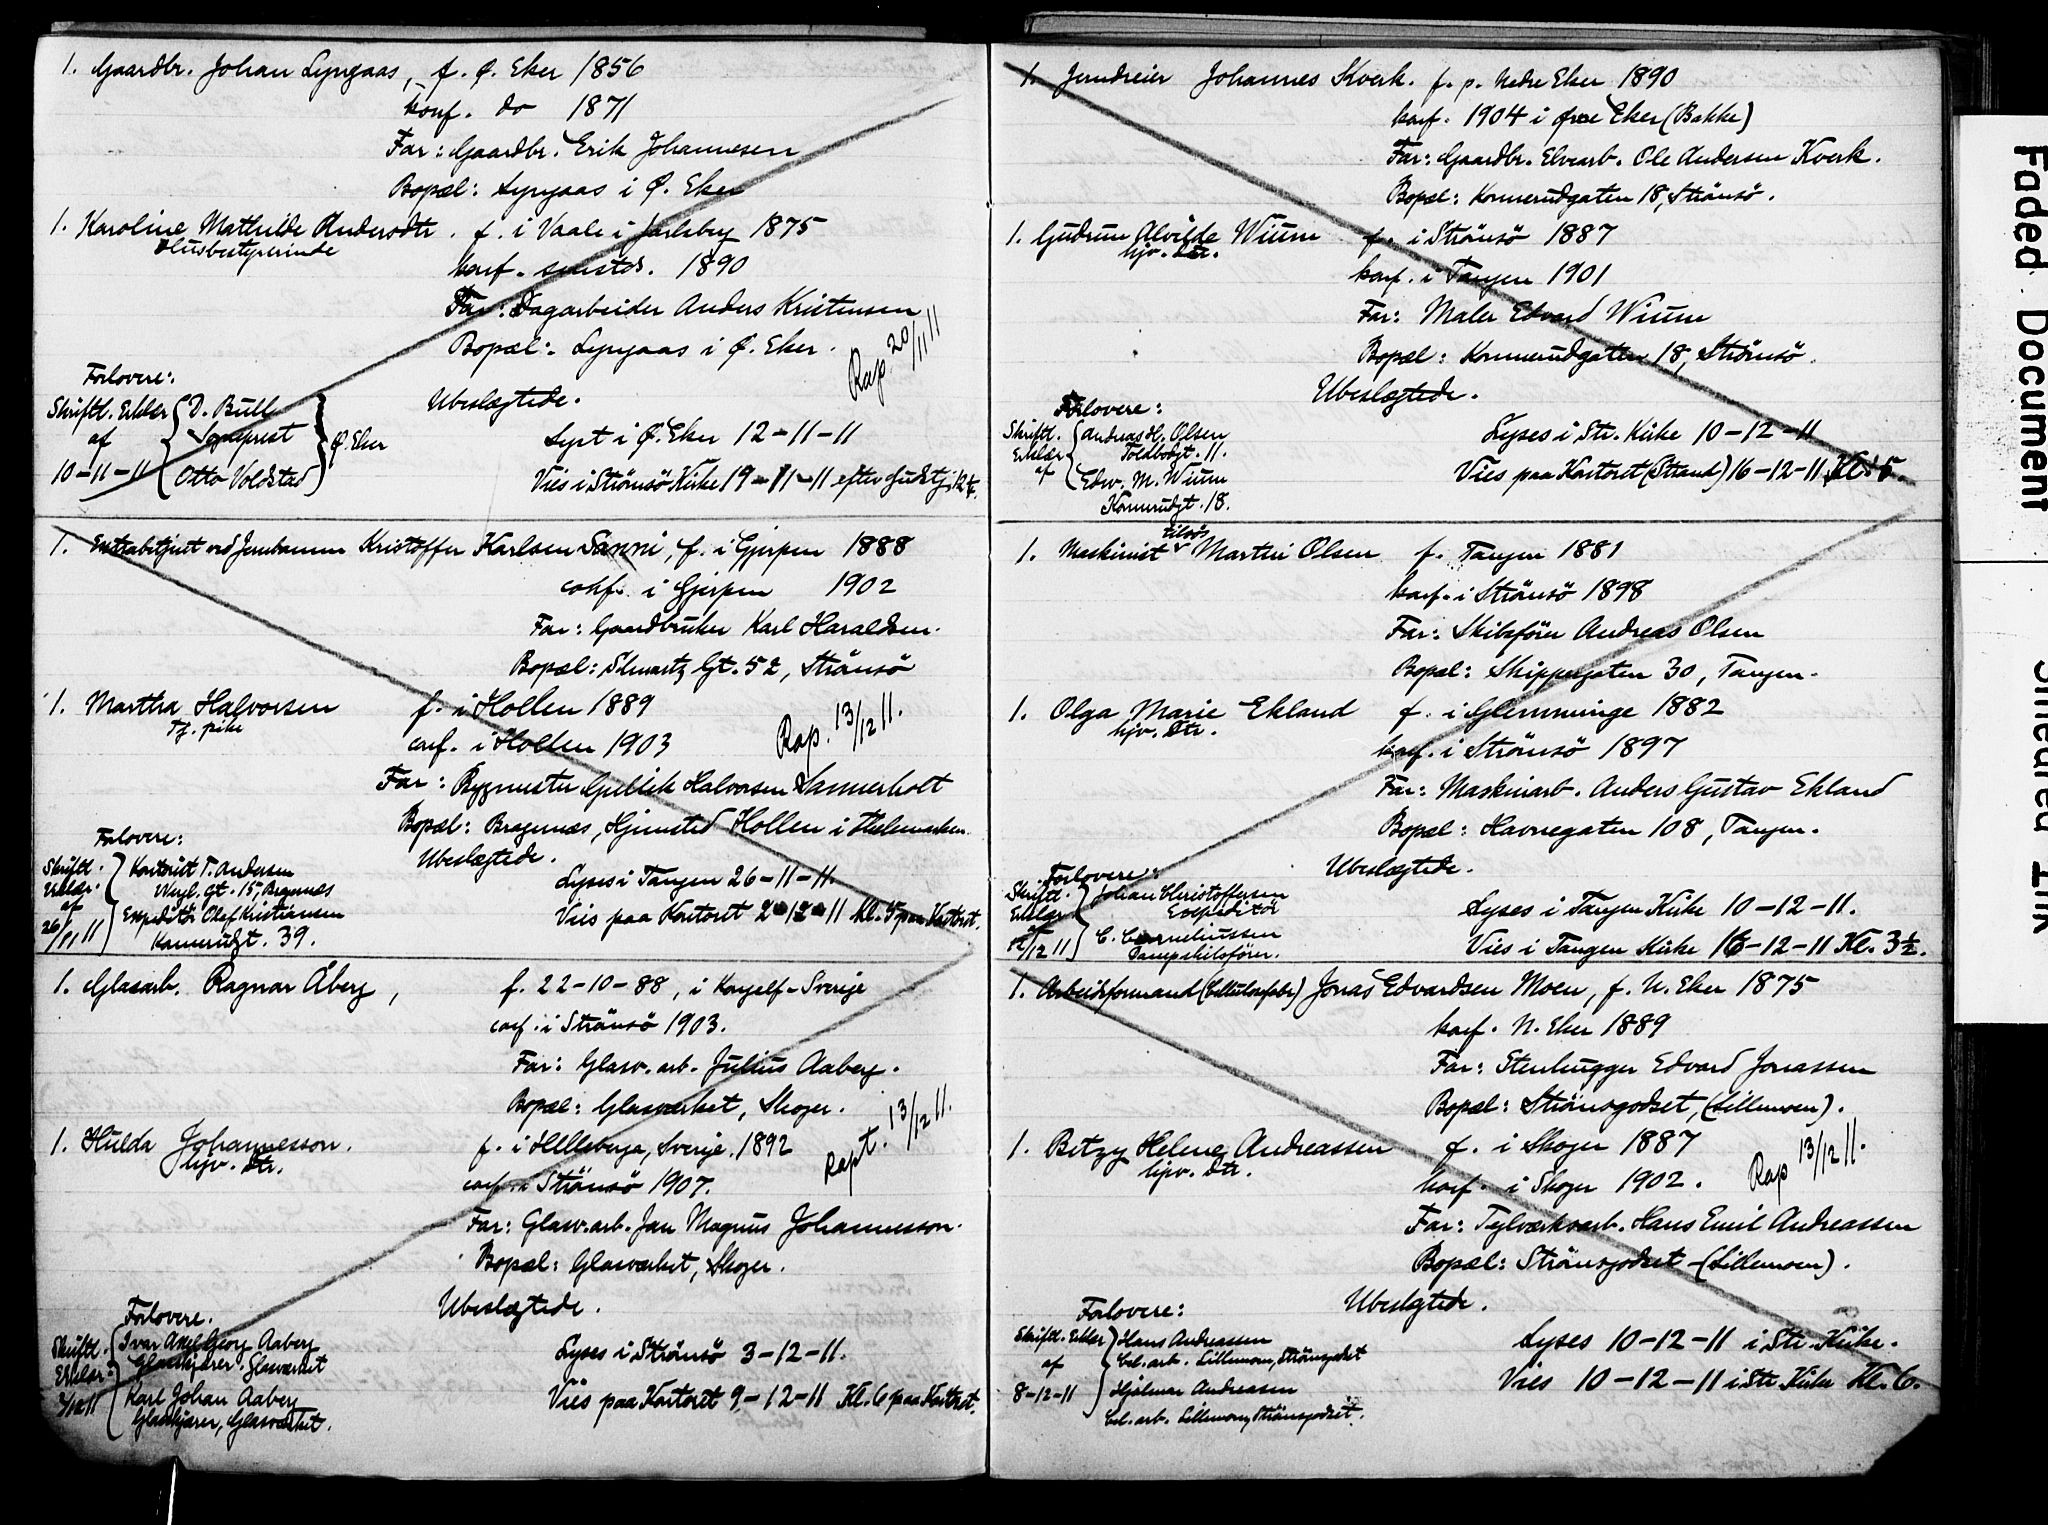 1. Gaardbr. Johan Lyngaas, f. Ø. Eker 1856
konf. do 1871
Far: Gaardbr. Erik Johannesen
Bopæl: Lyngaas i Ø. Eker
1. Karoline Mathilde Andersdtr. f. i Vaale i Jarlsberg 1875
Husbestyrerinde
konf. smstds. 1890
Far: Dagarbeider Anders Kristensen
Bopæl: Lyngaas i Ø. Eker.
Rap. 20/11 11
Ubeslægtede.
Forlovere:
Skriftl. Erklær
af
10-11-11
D. Bull
Sogneprest
Otto Voldstad
Ø. Eker
Lyst i Ø. Eker 12-11-11
Vies i Strömsö Kirke 19-11-11 efter Gudstj.
1. Extrabetjent ved Jernbanen Kristoffer Karlsen Sanni, f. i Gjerpen 1888
conf. i Gjerpen 1902
Far: Gaardbruker Karl Haraldsen.
Bopæl: Schwartz Gt. 52, Strömsö
1. Martha Halvorsen f. i Hollen 1889
Tj. pike
conf. i Hollen 1903
Rap. 13/12 11.
Far: Bygmester Gjellik Halvorsen Sannerholt
Bopæl: Bragernæs, Hjemsted Hollen i Thelemarken.
Ubeslægtede.
Forlovere:
Skriftl.
Erklær.
af
26/11 11
Kontorist T. Andersen
gt. 15, Bragernæs
Expeditör Olaf Kristiansen
Konnerudgt. 39.
Lyses i Tangen 26-11-11.
Vies paa Kontoret 2-12-11 Kl. 5 paa Kontoret.
1. Glasarb. Ragnar Åberg, f. 22-10-88, i Kongelf-Sverige
conf. i Strömsö 1903.
Far: Glasv. arb. Julius Aaberg.
Bopæl: Glasværket, Skoger.
1. Hulda Johannesson. f. i Hellsberga, Sverige, 1892
hjv. Dtr.
Rapt. 13/12 11.
conf. i Strömsö 1907.
Far: Glasv.arb. Jan Magnus Johannesson.
Bopæl: Glasværket, Skoger.
Ubeslægtede.
Forlovere.
Skriftl.
Erklær.
2/12 11
Ivar Axel Georg Aaberg
Glasskjærer, Glasværket
Karl Johan Aaberg
Glasskjærer, Glasværket.
Lyses i Strömsö 3-12-11.
Vies paa Kontoret 9-12-11 Kl. 6 paa Kontoret.
1. Jerndreier Johannes Kverk. f. p. Nedre Eker 1890
konf. 1904 i Øvre Eker (Bakke)
Far: Gaardbr. Elvearb. Ole Andersen Kverk.
Bopæl: Konnerudgaten 18, Strömsö.
1. Gudrun Alvilde Wium f. i Strömsö 1887
hjv. Dtr.
konf. i Tangen 1901
Far: Maler Edvard Wium
Bopæl: Konnerudgaten 18, Strömsö.
Ubeslægtede.
Forlovere:
Skriftl.
Erklær
af
Andreas H. Olsen
Toldbodgt. 11.
Edw. M. Wium
Konnerudgt. 18.
Lyses i Str. Kirke 10-12-11
Vies paa Kontoret (Strand) 16-12-11 Kl. 5.
1. Maskinist tilsös Martin Olsen f. Tangen 1881
konf. i Strömsö 1898
Far: Skibsförer Andreas Olsen
Bopæl: Skippergaten 30, Tangen.
1. Olga Marie Ekland f. i Glemminge 1882
hjv. Dtr.
konf. i Strömsö 1897
Far: Maskinarb. Anders Gustav Ekland
Bopæl: Havnegaten 108, Tangen.
Ubeslægtede.
Forlovere:
Skriftl.
Erklær
af
12/12 11
Johan Christoffersen
Expeditör
C. Corneliussen
Dampskibsförer.
Lyses i Tangen Kirke 10-12-11.
Vies i Tangen Kirke 16-12-11 Kl. 3½.
1. Arbeidsformand (Cellulosefabr.) Jonas Edvardsen Moen, f. N. Eker 1875
konf. N. Eker 1889
Far: Stenhugger Edvard Jonassen
Bopæl: Strömsgodset, (Lillemoen).
1. Betzy Helene Andreassen f. i Skoger 1887
hjv. Dtr.
Rap 13/12 11.
konf. i Skoger 1902.
Far: Teglværksarb. Hans Emil Andreassen
Bopæl: Strömsgodset (Lillemoen).
Ubeslgtede.
Forlovere:
Skriftl. Erklær
af
8-12-11
Hans Andreassen
Cel. arb. Lillemoen, Strömsgodset
Hjalmar Andreassen
Cel. arb. Lillemoen, Strömsgodset.
Lyses 10-12-11 i Str. Kirke.
Vies 10-12-11 i Str. Kirke Kl. 6.
Faded Document
Smeared Ink